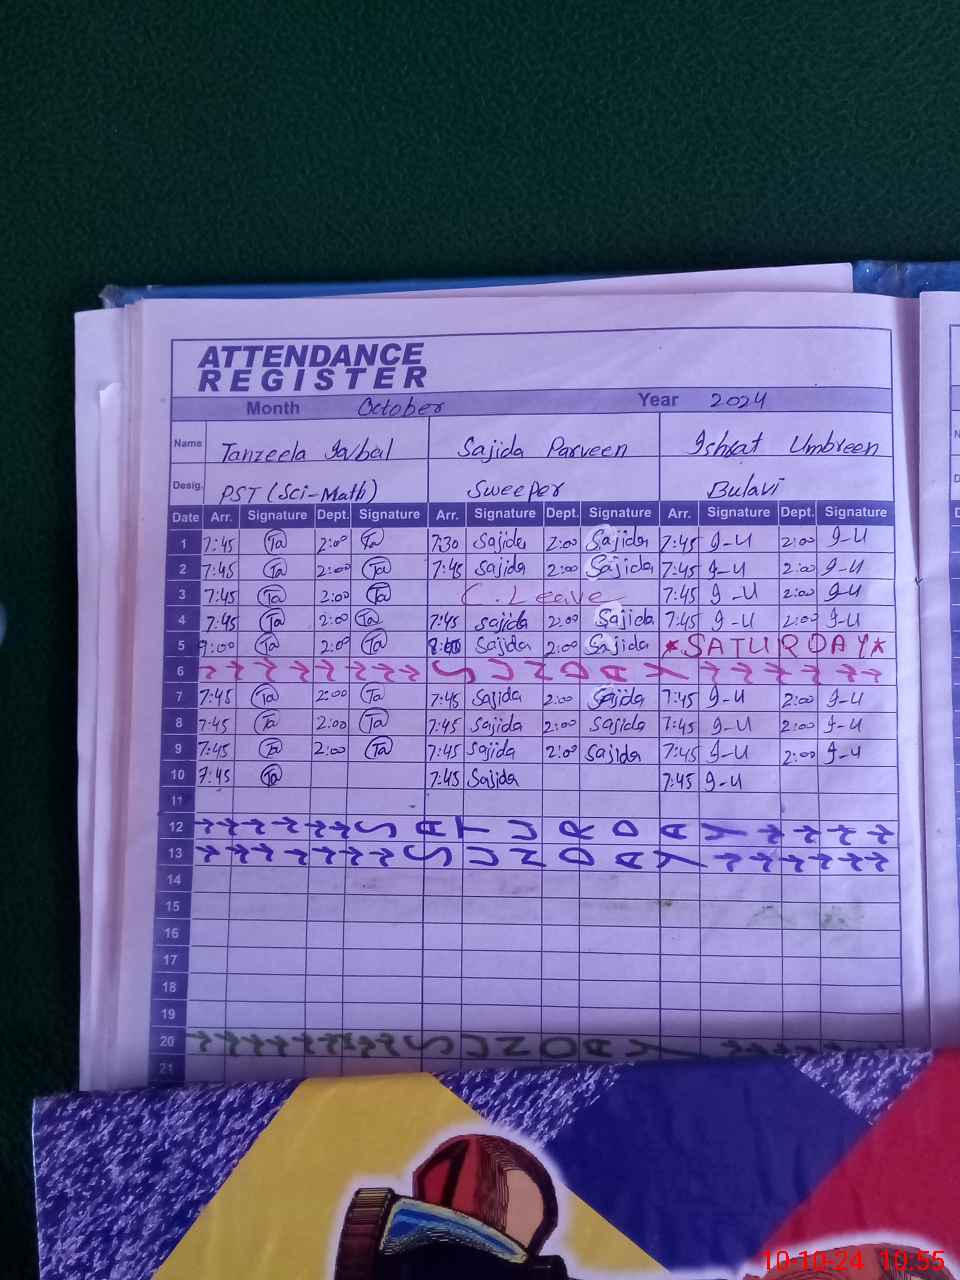 ATTENDANCE
REGISTER
Month October Year 2024
Name Tanzeela Iqbal Sajida Parveen Ishrat Umbreen
Desig. PST (Sci-Math) Sweeper Bulavi
Date Arr. Signature Dept. Signature Arr. Signature Dept. Signature Arr. Signature Dept. Signature
1 7:45 Ta 2:00 Ta 7:30 Sajida 2:00 Sajida 7:45 I-U 2:00 I-U
2 7:45 Ta 2:00 Ta 7:45 Sajida 2:00 Sajida 7:45 I-U 2:00 I-U
3 7:45 Ta 2:00 Ta C. Leave 7:45 I-U 2:00 I-U
4 7:45 Ta 2:00 Ta 7:45 Sajida 2:00 Sajida 7:45 I-U 2:00 I-U
5 9:00 Ta 2:00 Ta Sajida 2:00 Sajida *SATURDAY*
6 SUNDAY
7 7:45 Ta 2:00 Ta 7:45 Sajida 2:00 Sajida 7:45 I-U 2:00 I-U
8 7:45 Ta 2:00 Ta 7:45 Sajida 2:00 Sajida 7:45 I-U 2:00 I-U
9 7:45 Ta 2:00 Ta 7:45 Sajida 2:00 Sajida 7:45 I-U 2:00 I-U
10 7:45 Ta 7:45 Sajida 7:45 I-U
11
12 SATURDAY
13 SUNDAY
14
15
16
17
18
19
20 SUNDAY
21
10-10-24 10:55